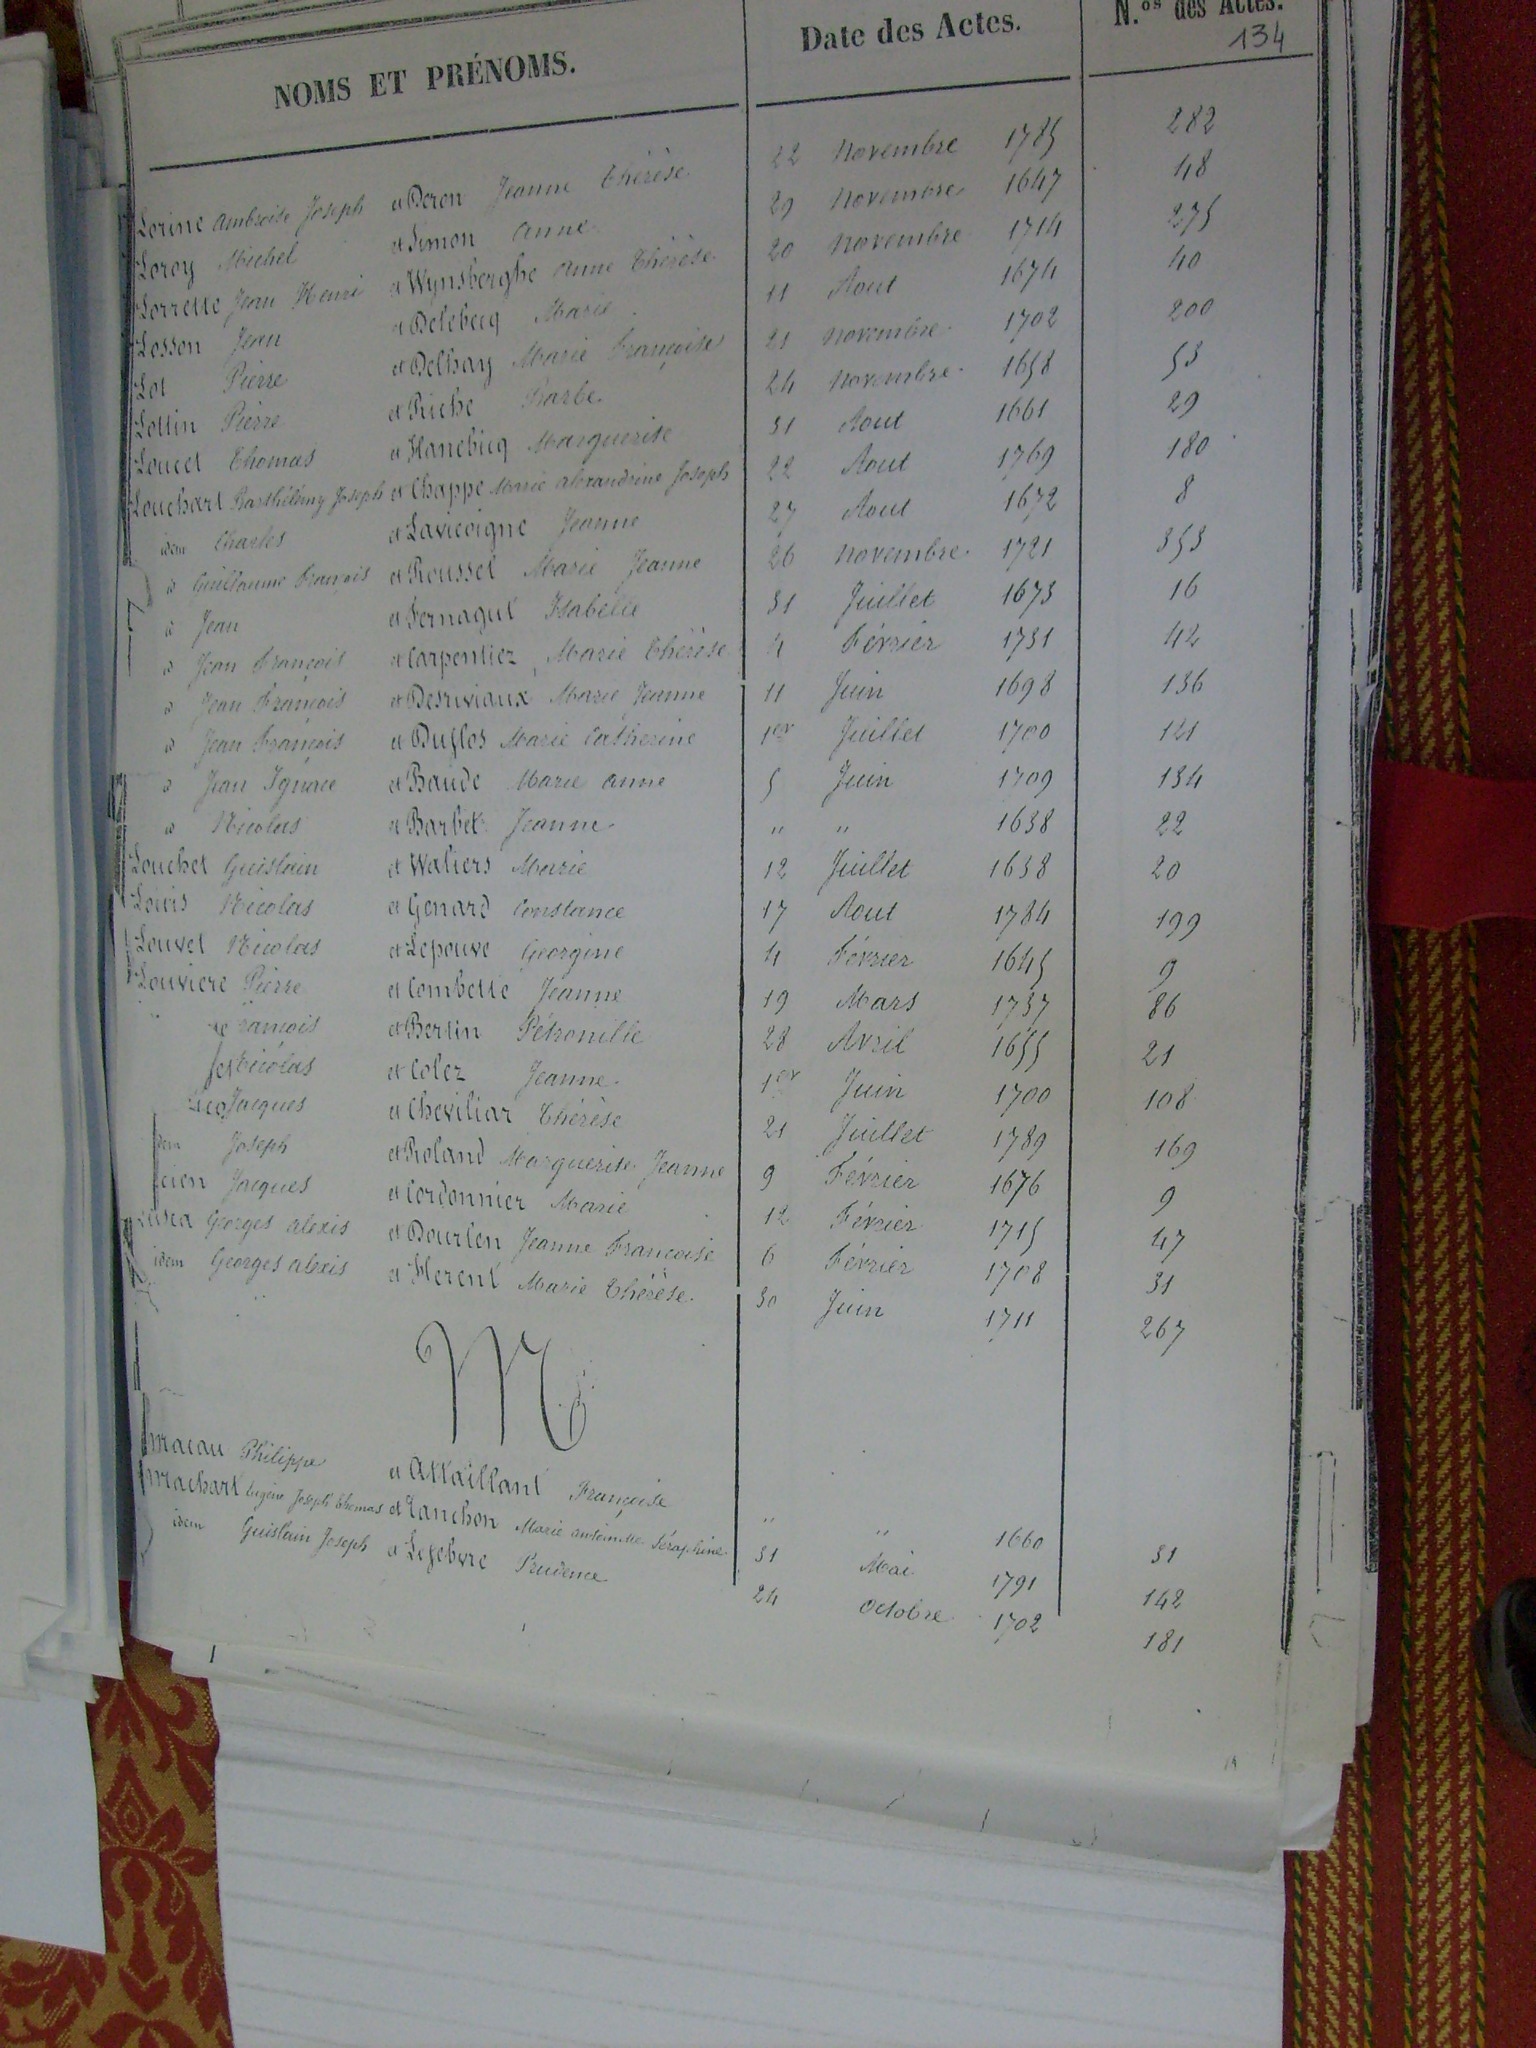 NOMS ET PRÉNOMS. Date des Actes. N.os des Actes.
134
Lorine Ambroise Joseph et Deron Jeanne Thérèse 22 Novembre 1785 282
Loroy Michel et Simon Anne 29 Novembre 1647 48
Lorrette Jean Henri et Wynsberghe Anne Thérèse 20 Novembre 1714 275
Losson Jean et Delebecq Marie 11 Aout 1674 40
Lot Pierre et Delhay Marie Françoise 21 Novembre 1702 200
Lottin Pierre et Riche Barbe 24 Novembre 1658 53
Loucet Thomas et Hanebicq Marguerite 31 Aout 1661 29
Louchart Barthélémy Joseph et Chappe Marie Alexandrine Joseph 22 Aout 1769 180
idem Charles et Lavicoigne Jeanne 27 Aout 1672 8
id Guillaume François et Roussel Marie Jeanne 26 Novembre 1721 353
id Jean et Fernagut Isabelle 31 Juillet 1673 16
id Jean François et Carpentiez Marie Thérèse 4 Février 1731 42
id Jean François et Desriviaux Marie Jeanne 11 Juin 1698 136
id Jean François et Duflos Marie Catherine 1er Juillet 1700 121
id Jean Ignace et Baude Marie Anne 5 Juin 1709 134
id Nicolas et Barbet Jeanne " " 1638 22
Louchet Guislain et Waliers Marie 12 Juillet 1638 20
Louis Nicolas et Genard Constance 17 Aout 1784 199
Louvet Nicolas et Lepouve Georgine 4 Février 1645 9
Louviere Pierre et Combette Jeanne 19 Mars 1737 86
François et Bertin Pétronille 28 Avril 1655 21
Nicolas et Colez Jeanne 1er Juin 1700 108
Jacques et Cheviliar Thérèse 21 Juillet 1789 169
idem Joseph et Roland Marguerite Jeanne 9 Février 1676 9
Jacques et Cordonnier Marie 12 Février 1715 47
Georges Alexis et Dourlen Jeanne Françoise 6 Février 1708 31
idem Georges Alexis et Herent Marie Thérèse 30 Juin 1711 267
M
Macau Philippe et Attaillant Françoise " " 1660 31
Machart Eugène Joseph Thomas et Tanchon Marie Antoinette Séraphine 31 Mai 1791 142
idem Guislain Joseph et Lefebvre Prudence 24 Octobre 1702 181